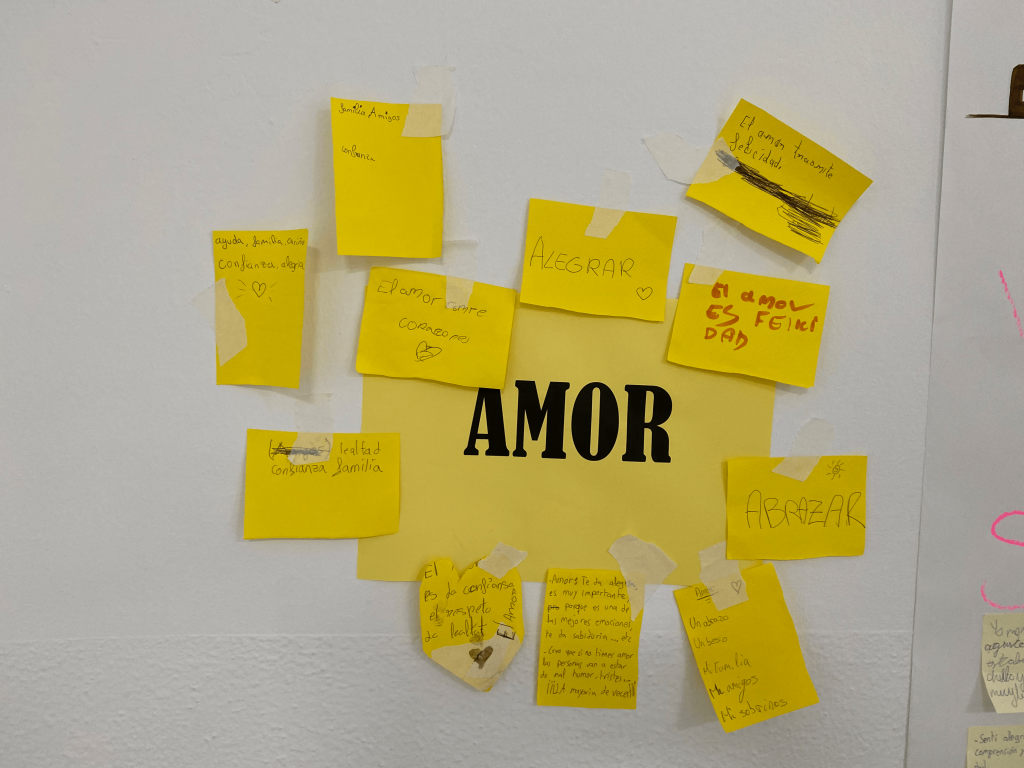 familia Amigos
confianza
El amor trasmite
felicidad.
ayuda, familia,
confianza, alegria
ALEGRAR
El amor
corazones
El amor
ES FELICI
DAD
AMOR
lealtad
confianza familia
ABRAZAR
El
es la confianse
el respeto
la lealtat
El Amor
-Amor: Te da alegria,
es muy importante,
porque es una de
las mejores emociones
te da sabiduria ... etc
-Creo que si no tienes amor
las personas van a estar
de mal humor, tristes...
¡¡¡LA majoria de veces!!!
Amor
Un abrazo
Un beso
Mi Familia
Mis amigos
Mi sobrinos
Yo
-Sentí
comprensión y